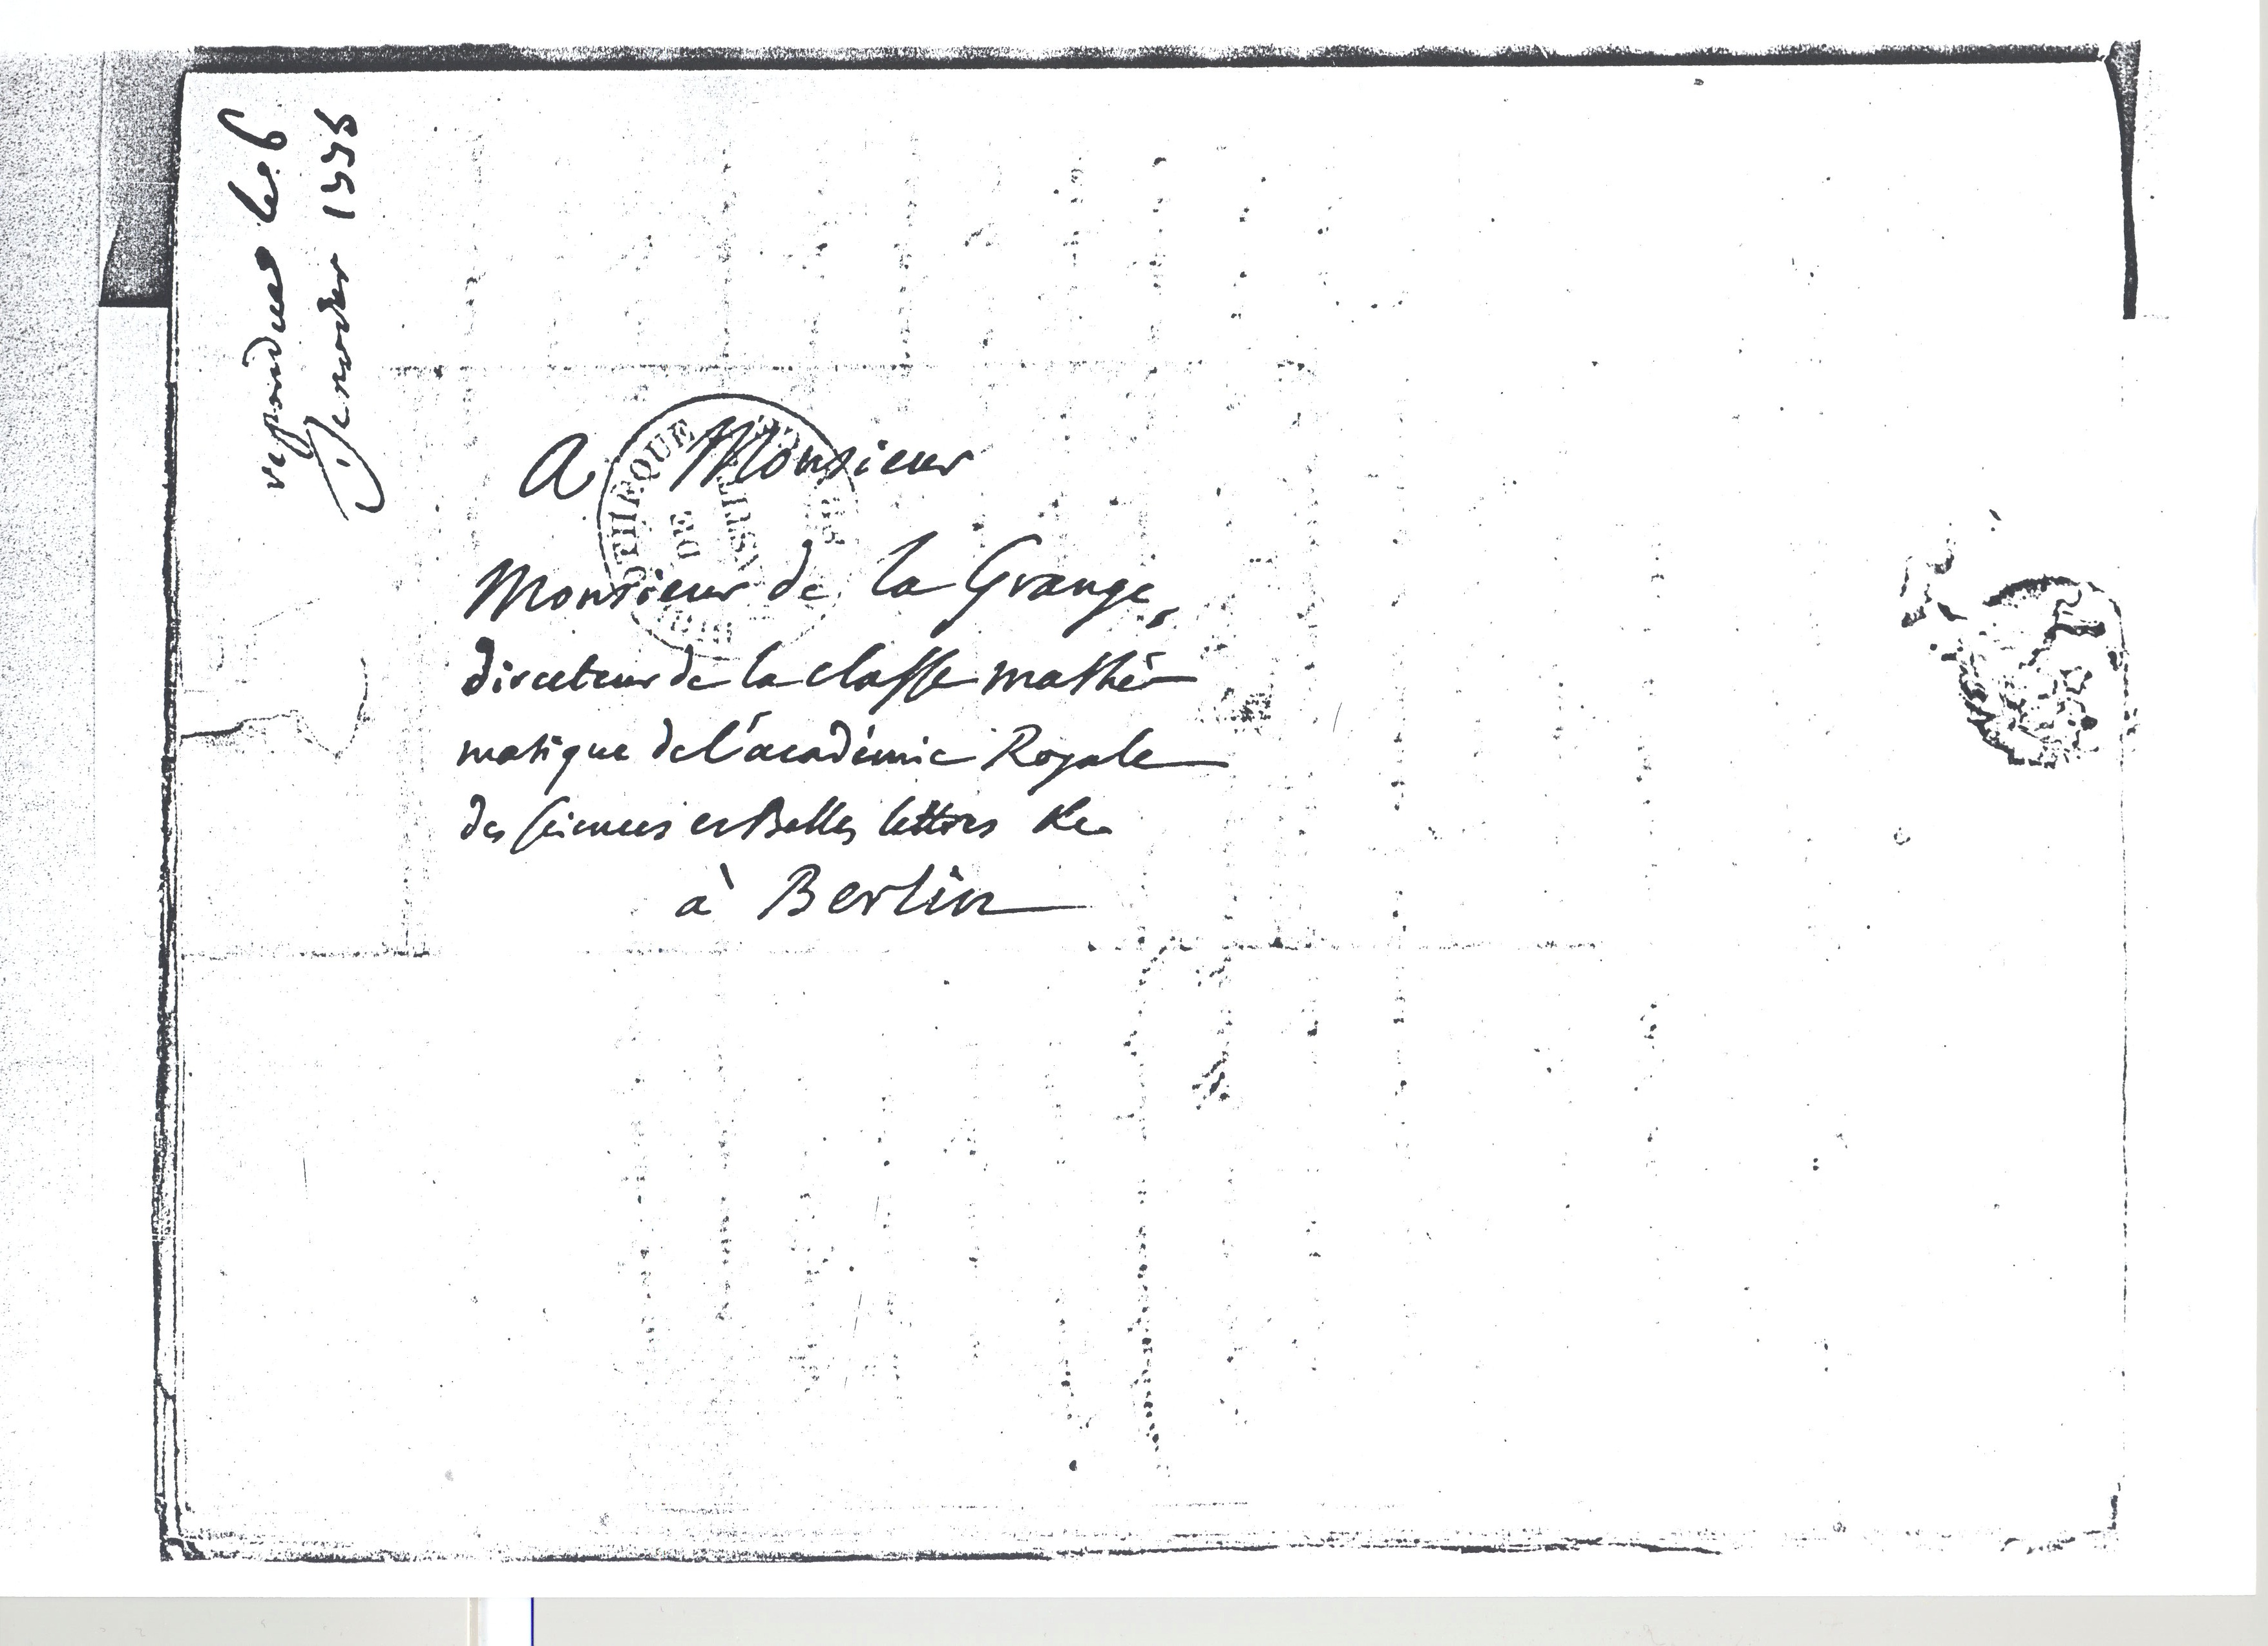 repondue le 6
Janvier 1775
A Monsieur
Monsieur de la Grange,
directeur de la classe mathé-
matique de l'académie Royale
des sciences et Belles lettres &c.
à Berlin
THEQUE
DE